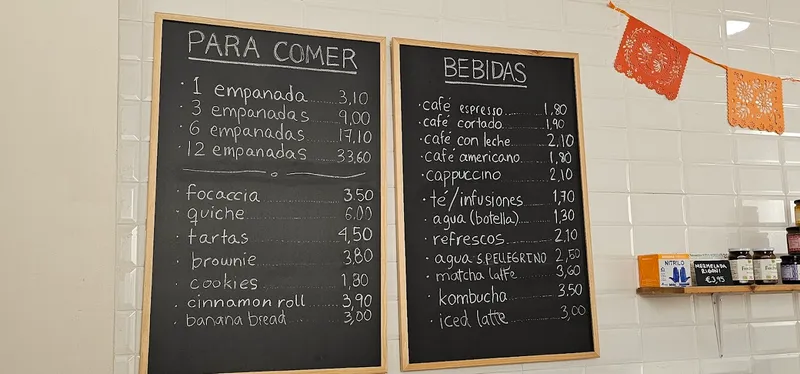 PARA COMER
· 1 empanada........3,10
· 3 empanadas.......9,00
· 6 empanadas.......17,10
· 12 empanadas......33,60
· focaccia..........3.50
· quiche............6.00
· tartas............4,50
· brownie...........3.80
· cookies...........1,80
· cinnamon roll.....3,90
· banana bread......3,00
BEBIDAS
· café espresso.......1,80
· café cortado........1,90
· café con leche......2,10
· café americano......1,80
· cappuccino..........2,10
· té/infusiones.......1,70
· agua (botella)......1,30
· refrescos...........2,10
· agua S.PELLEGRINO 2,50
· matcha latte........3,60
· kombucha............3.50
· iced latte..........3,00
NITRILO
MERMELADA
€3,95